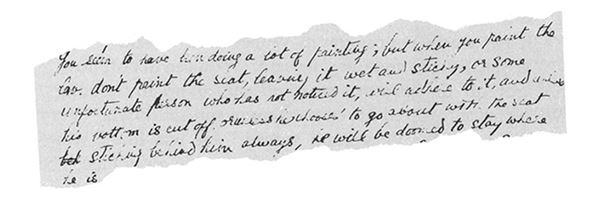 You seem to have been doing a lot of painting; but when you paint the
lav. don't paint the seat, leaving it wet and sticky, or some
unfortunate person who has not noticed it, will adhere to it, and unless
his bottom is cut off, or unless he chooses to go about with the seat
sticking behind him always, he will be doomed to stay where
he is